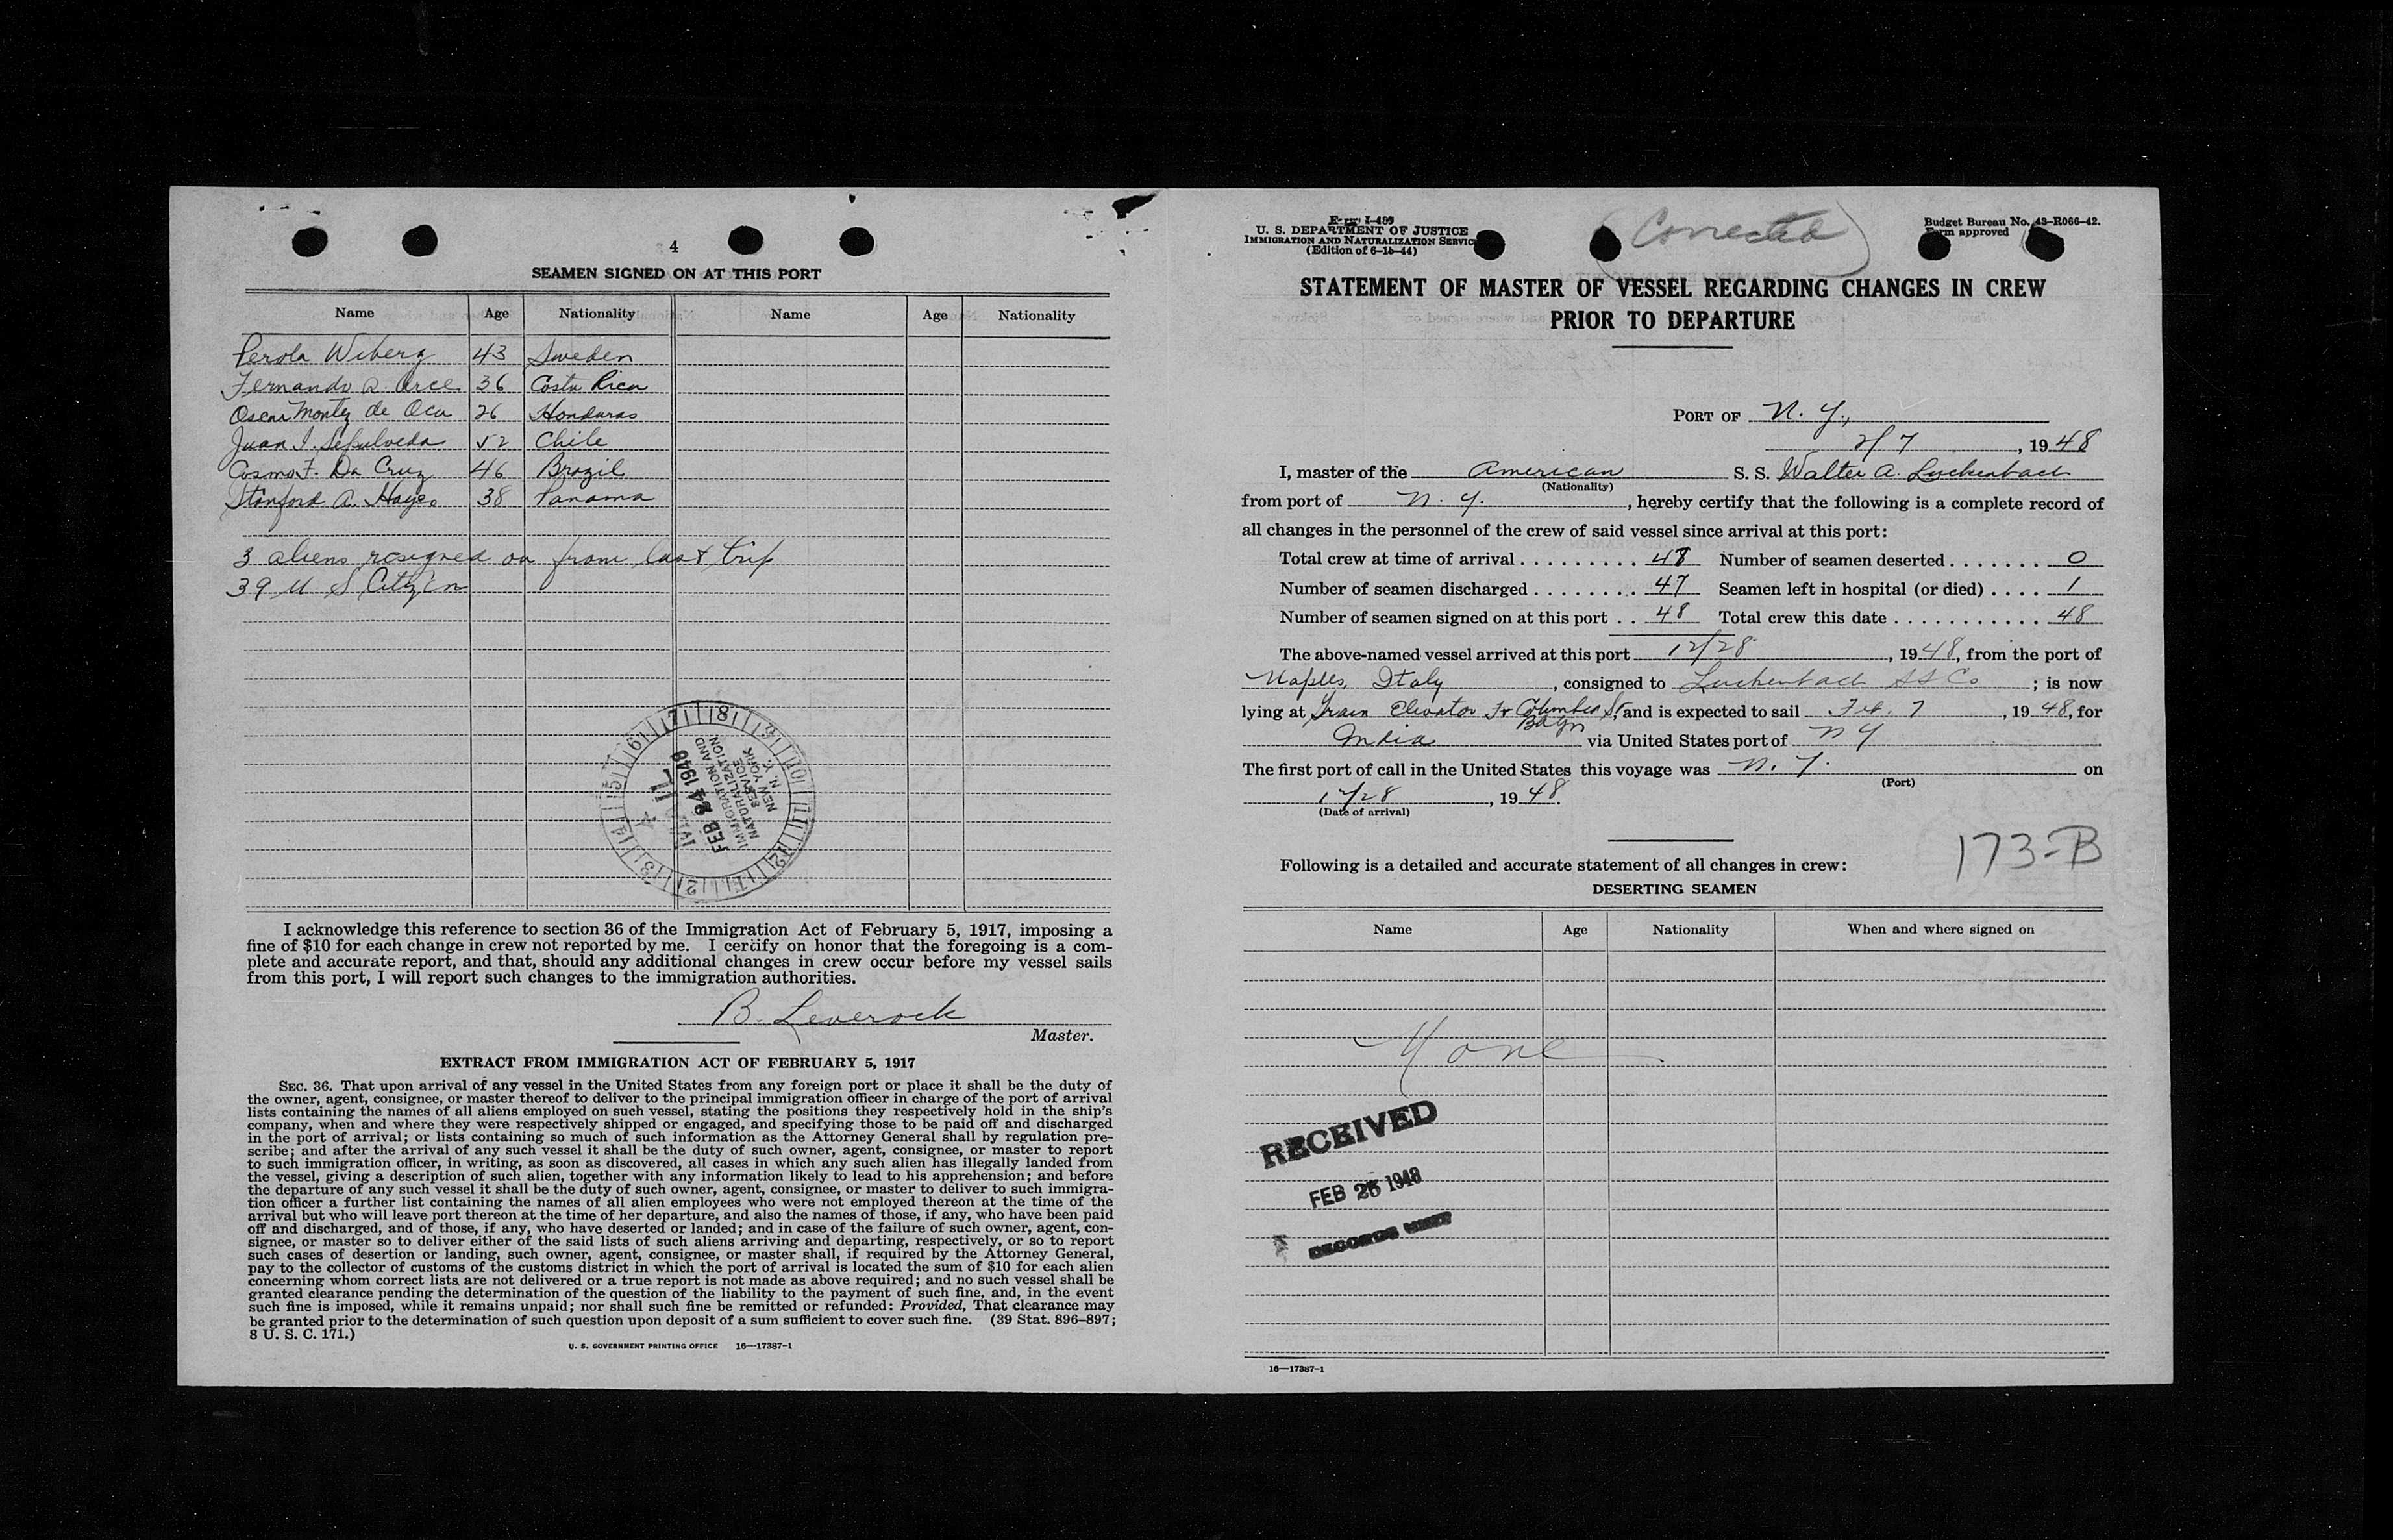 4
SEAMEN SIGNED ON AT THIS PORT
Name Age Nationality Name Age Nationality
Perola Wiberg 43 Sweden
Fernando A. Arce 36 Costa Rica
Oscar Montez de Oca 26 Honduras
Juan I. Sepulveda 52 Chile
Cosmo F. Da Cruz 46 Brazil
Stanford A. Hayes 38 Panama
3 aliens resigned on from last trip
39 U S Citizen
FEB 24 1948
IMMIGRATION AND
NATURALIZATION
SERVICE
NEW YORK
N. Y.
I acknowledge this reference to section 36 of the Immigration Act of February 5, 1917, imposing a
fine of $10 for each change in crew not reported by me. I certify on honor that the foregoing is a com-
plete and accurate report, and that, should any additional changes in crew occur before my vessel sails
from this port, I will report such changes to the immigration authorities.
B. Leverock
Master.
EXTRACT FROM IMMIGRATION ACT OF FEBRUARY 5, 1917
SEC. 36. That upon arrival of any vessel in the United States from any foreign port or place it shall be the duty of
the owner, agent, consignee, or master thereof to deliver to the principal immigration officer in charge of the port of arrival
lists containing the names of all aliens employed on such vessel, stating the positions they respectively hold in the ship's
company, when and where they were respectively shipped or engaged, and specifying those to be paid off and discharged
in the port of arrival; or lists containing so much of such information as the Attorney General shall by regulation pre-
scribe; and after the arrival of any such vessel it shall be the duty of such owner, agent, consignee, or master to report
to such immigration officer, in writing, as soon as discovered, all cases in which any such alien has illegally landed from
the vessel, giving a description of such alien, together with any information likely to lead to his apprehension; and before
the departure of any such vessel it shall be the duty of such owner, agent, consignee, or master to deliver to such immigra-
tion officer a further list containing the names of all alien employees who were not employed thereon at the time of the
arrival but who will leave port thereon at the time of her departure, and also the names of those, if any, who have been paid
off and discharged, and of those, if any, who have deserted or landed; and in case of the failure of such owner, agent, con-
signee, or master so to deliver either of the said lists of such aliens arriving and departing, respectively, or so to report
such cases of desertion or landing, such owner, agent, consignee, or master shall, if required by the Attorney General,
pay to the collector of customs of the customs district in which the port of arrival is located the sum of $10 for each alien
concerning whom correct lists are not delivered or a true report is not made as above required; and no such vessel shall be
granted clearance pending the determination of the question of the liability to the payment of such fine, and, in the event
such fine is imposed, while it remains unpaid; nor shall such fine be remitted or refunded: Provided, That clearance may
be granted prior to the determination of such question upon deposit of a sum sufficient to cover such fine. (39 Stat. 896–897;
8 U. S. C. 171.)
U. S. GOVERNMENT PRINTING OFFICE 16—17387-1
Form I-489
U. S. DEPARTMENT OF JUSTICE
IMMIGRATION AND NATURALIZATION SERVICE
(Edition of 6-15-44)
Corrected
Budget Bureau No. 43-R066-42.
Form approved
STATEMENT OF MASTER OF VESSEL REGARDING CHANGES IN CREW
PRIOR TO DEPARTURE
PORT OF N. Y.,
2/7, 1948
I, master of the American S. S. Walter A. Luckenbach
(Nationality)
from port of N. Y., hereby certify that the following is a complete record of
all changes in the personnel of the crew of said vessel since arrival at this port:
Total crew at time of arrival . . . . . . . . . 48 Number of seamen deserted . . . . . . . 0
Number of seamen discharged . . . . . . . . 47 Seamen left in hospital (or died) . . . . 1
Number of seamen signed on at this port . . 48 Total crew this date . . . . . . . . . . . 48
The above-named vessel arrived at this port 12/28, 1948, from the port of
Naples, Italy, consigned to Luckenbach S S Co; is now
lying at Grain Elevator Ft Columbia St, and is expected to sail Feb. 7, 1948, for
Bklyn
India via United States port of N Y
The first port of call in the United States this voyage was N. Y. on
(Port)
12/28, 1948.
(Date of arrival)
173-B
Following is a detailed and accurate statement of all changes in crew:
DESERTING SEAMEN
Name Age Nationality When and where signed on
None
RECEIVED
FEB 25 1948
RECORDS UNIT
16—17387-1